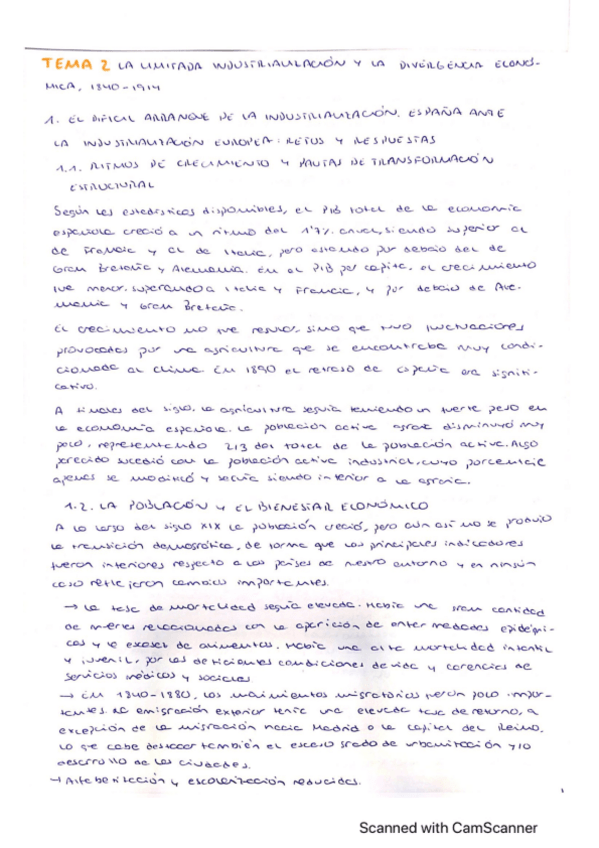 TEMA 2 LA LIMITADA INDUSTRIALIZACIÓN Y LA DIVERGENCIA ECONÓ-
MICA, 1840-1914
1. EL DIFICIL ARRANQUE DE LA INDUSTRIALIZACIÓN. ESPAÑA ANTE
LA INDUSTRIALIZACIÓN EUROPEA: RETOS Y RESPUESTAS
1.1. RITMOS DE CRECIMIENTO Y PAUTAS DE TRANSFORMACIÓN
ESTRUCTURAL
Según las estadísticas disponibles, el PIB total de la economía
española creció a un ritmo del 1'7% anual, siendo superior al
de Francia y al de Italia, pero estando por debajo del de
Gran Bretaña y Alemania. En el PIB per capita, el crecimiento
fue menor, superando a Italia y Francia, y por debajo de Ale-
mania y Gran Bretaña.
El crecimiento no fue regular, sino que tuvo fluctuaciones
provocadas por una agricultura que se encontraba muy condi-
cionada al clima. En 1890 el retraso de España era signifi-
cativo.
A finales del siglo, la agricultura seguía teniendo un fuerte peso en
la economía española. La población activa agraria disminuyó muy
poco, representando 2/3 del total de la población activa. Algo
parecido sucedió con la población activa industrial, cuyo porcentaje
apenas se modificó y seguía siendo inferior a la agraria.
1.2. LA POBLACIÓN Y EL BIENESTAR ECONÓMICO
A lo largo del siglo XIX la población creció, pero aún así no se produjo
la transición demográfica, de forma que los principales indicadores
fueron inferiores respecto a los países de nuestro entorno y en ningún
caso reflejaron cambios importantes.
→ La tasa de mortalidad seguía elevada. Había una gran cantidad
de muertes relacionadas con la aparición de enfermedades epidémi-
cas y la escasez de alimentos. Había una alta mortalidad infantil
y juvenil, por las deficientes condiciones de vida y carencias de
servicios médicos y sociales
→ En 1840-1880, los movimientos migratorios fueron poco impor-
tantes. La emigración exterior tenía una elevada tasa de retorno, a
excepción de la migración hacia Madrid o la capital del Reino.
Lo que cabe destacar también el escaso grado de urbanización y/o
desarrollo de las ciudades.
→ Alfabetización y escolarización reducidas.
Scanned with CamScanner